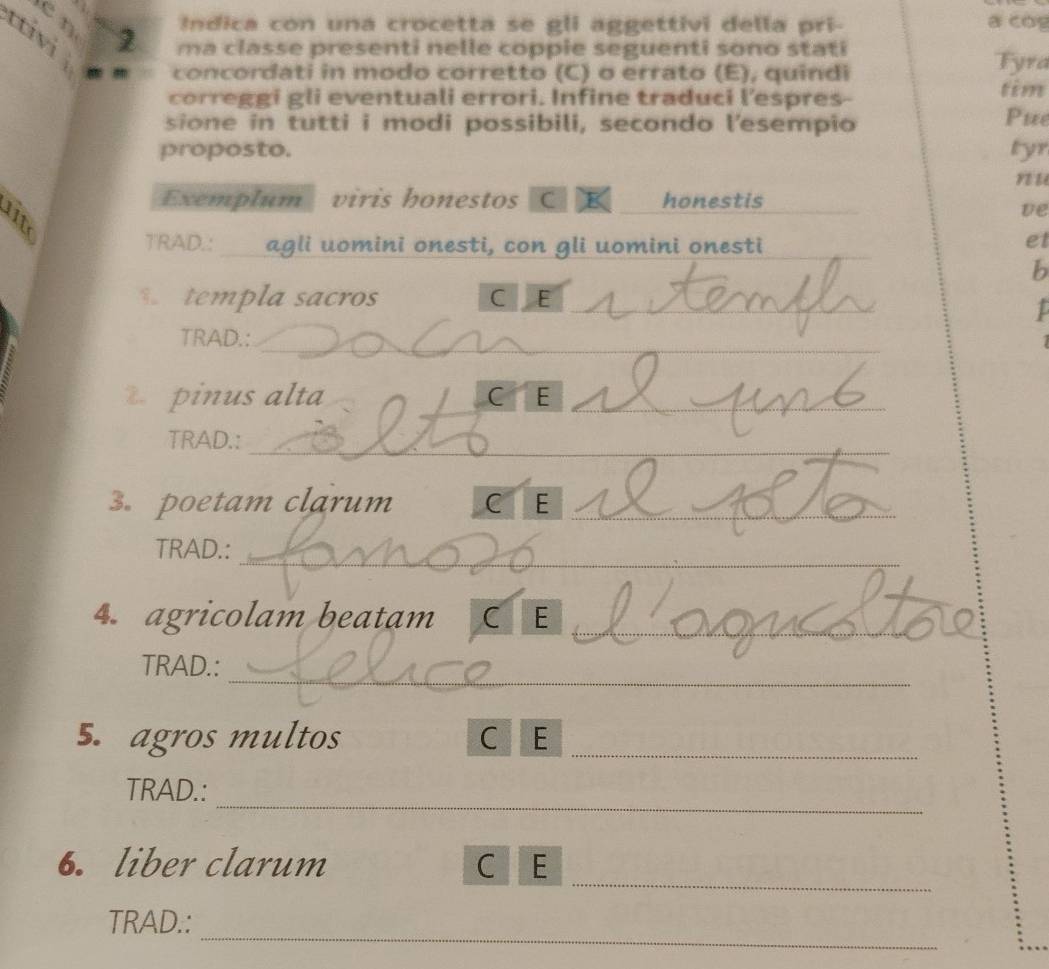 2 Indica con una crocetta se gli aggettivi della pri-
ma classe presenti nelle coppie seguenti sono stati
concordati in modo corretto (C) o errato (E), quindi
correggi gli eventuali errori. Infine traduci l'espres-
sione in tutti i modi possibili, secondo l'esempio
proposto.
Exemplum viris honestos C E honestis
TRAD.: agli uomini onesti, con gli uomini onesti
1. templa sacros C E i templi
TRAD.: sacri
2. pinus alta C E il pino
TRAD.: alto
3. poetam clarum C E il poeta
TRAD.: famoso
4. agricolam beatam C E l'agricoltore
TRAD.: felice
5. agros multos C E
TRAD.:
6. liber clarum C E
TRAD.:
a cog
Tyra
tim
Pue
tyr
nu
ve
et
b